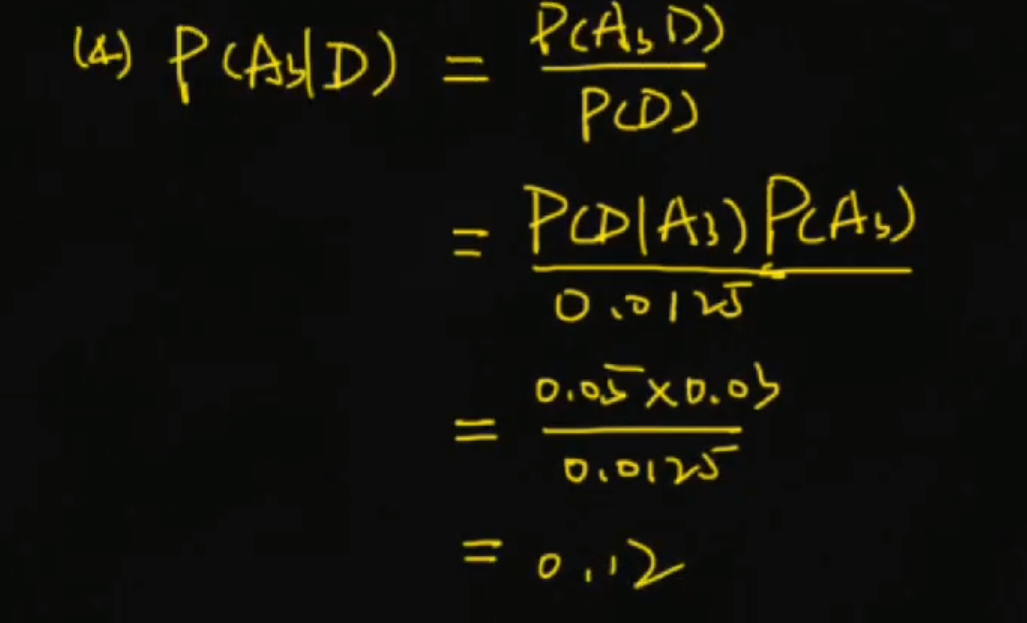 (4) P(A₃|D) = P(A₃D) / P(D)
= P(D|A₃)P(A₃) / 0.0125
= 0.05×0.03 / 0.0125
= 0.12